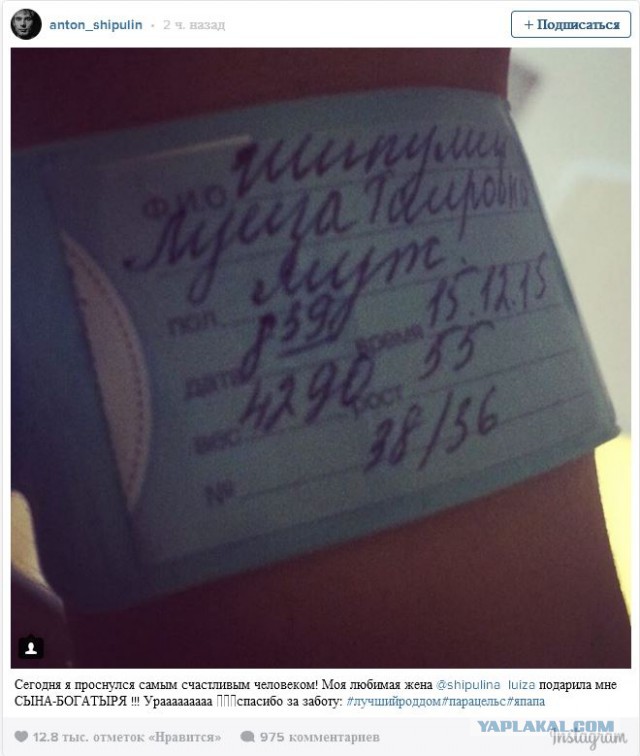 anton_shipulin • 2 ч. назад
+ Подписаться
Шипулин
ФИО
Луиза Таировна
пол муж.
8 59
дата время 15.12.15
вес 4290 рост 55
№ 38/36
Сегодня я проснулся самым счастливым человеком! Моя любимая жена @shipulina_luiza подарила мне
СЫНА-БОГАТЫРЯ !!! Урааааааааа спасибо за заботу: #лучшийроддом#парацельс#япапа
12.8 тыс. отметок «Нравится» 975 комментариев
Instagram
YAPLAKAL.COM